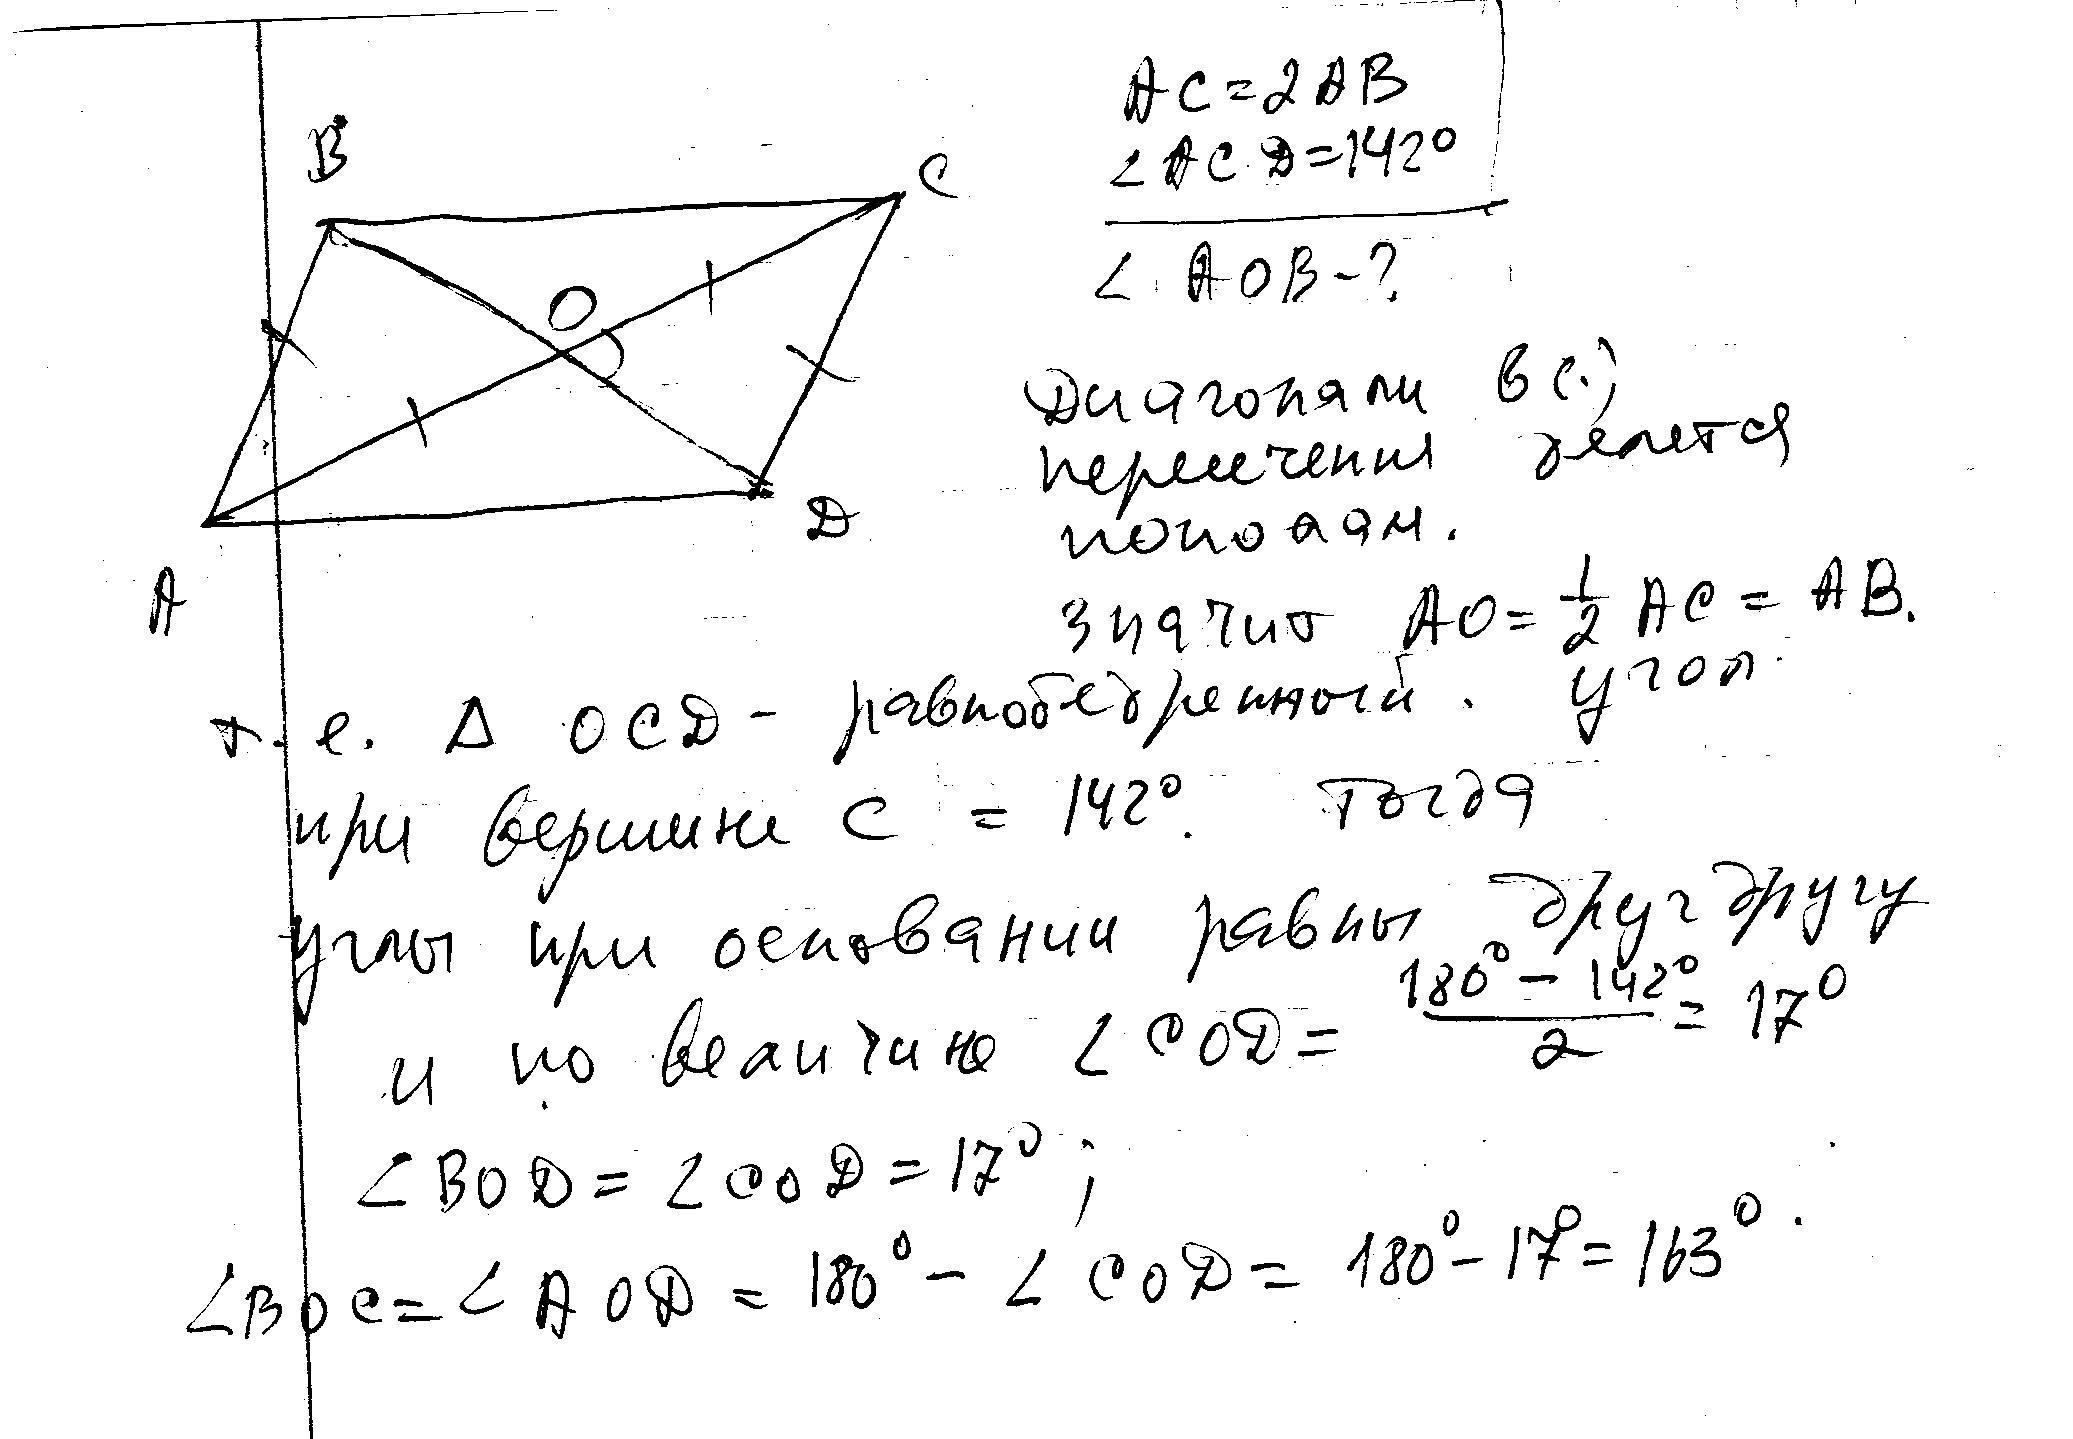 B
C
O
A
D
AC=2AB
∠ACD=142°
∠AOB-?
Диагонали в (.)
пересечения делятся
пополам.
значит AO=1/2 AC=AB.
т.е. Δ OCD - равнобедренный. угол
при вершине C = 142°. Тогда
углы при основании равны друг другу
и по величине ∠COD= (180°-142°)/2 = 17°
∠BOD=∠COD=17°;
∠BOC=∠AOD=180°-∠COD=180°-17°=163°.